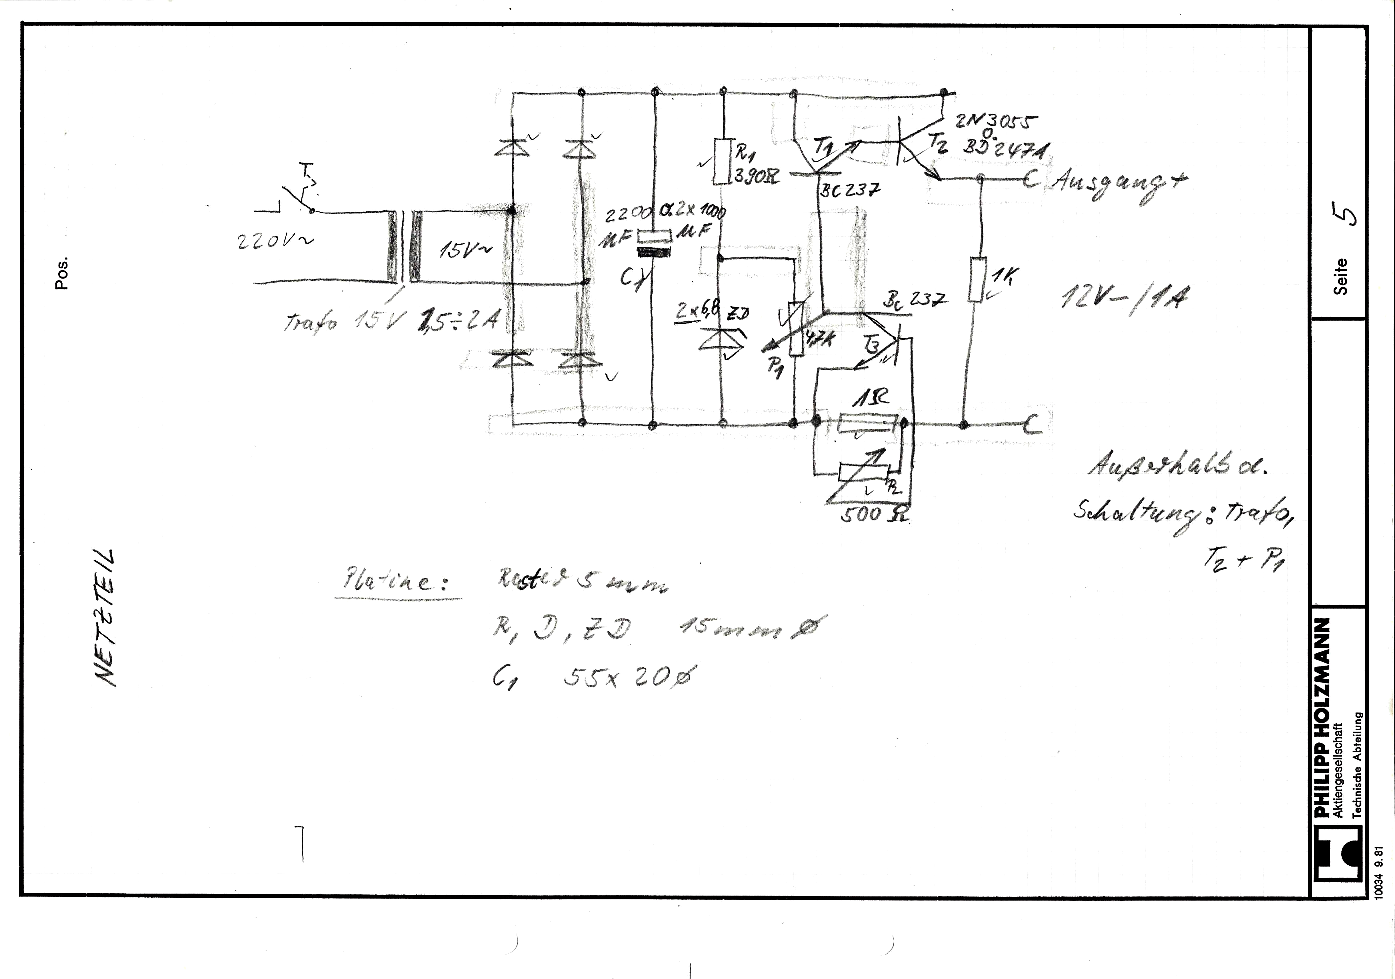 Pos.
NETZTEIL
T₃
220V~
15V~
Trafo 15V 1,5÷2A
2200 o. 2x1000
µF µF
C₁
R₁
390Ω
2x6,8 ZD
P₁
4,7K
T₁
BC237
2N3055
o.
BD247A
T₂
Ausgang+
1K
12V-/1A
Bc 237
T₃
1Ω
R₂
500Ω
Außerhalb d.
Schaltung: Trafo,
T₂ + P₁
Platine: Raster 5 mm
R, D, ZD 15mm Ø
C₁ 55x20Ø
Seite 5
PHILIPP HOLZMANN
Aktiengesellschaft
Technische Abteilung
10034 9.81